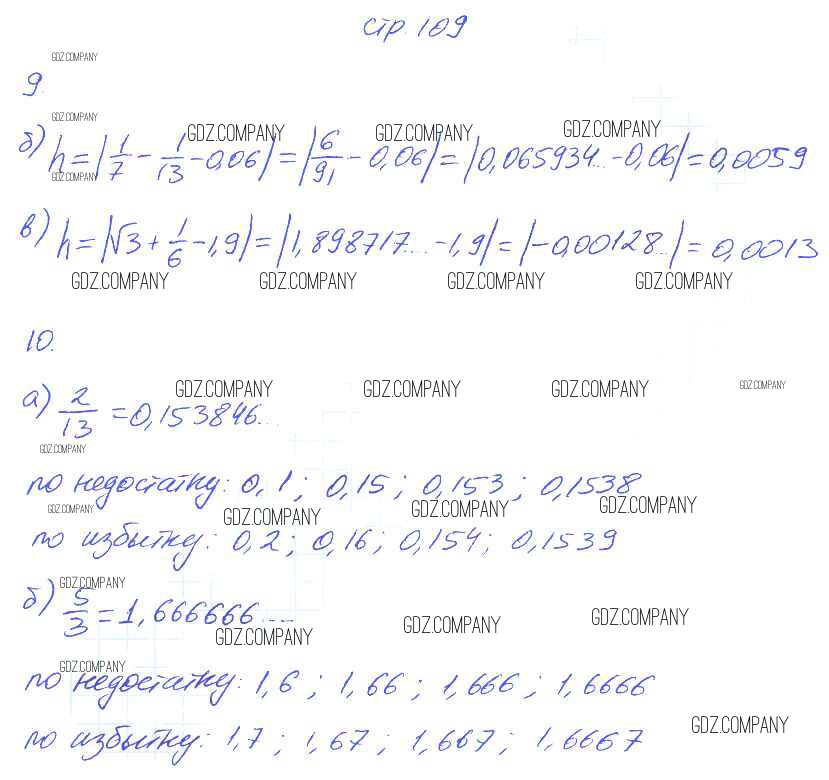 стр. 109
GDZ.COMPANY
9.
GDZ.COMPANY
GDZ.COMPANY GDZ.COMPANY GDZ.COMPANY
б) h = |1/7 - 1/13 - 0,06| = |6/91 - 0,06| = |0,065934... - 0,06| = 0,0059
GDZ.COMPANY
в) h = |√3 + 1/6 - 1,9| = |1,898717... - 1,9| = |-0,00128...| = 0,0013
GDZ.COMPANY GDZ.COMPANY GDZ.COMPANY GDZ.COMPANY
10.
GDZ.COMPANY GDZ.COMPANY GDZ.COMPANY GDZ.COMPANY
а) 2/13 = 0,153846...
GDZ.COMPANY
по недостатку: 0,1; 0,15; 0,153; 0,1538
GDZ.COMPANY GDZ.COMPANY GDZ.COMPANY GDZ.COMPANY
по избытку: 0,2; 0,16; 0,154; 0,1539
GDZ.COMPANY
б) 5/3 = 1,666666....
GDZ.COMPANY GDZ.COMPANY GDZ.COMPANY
GDZ.COMPANY
по недостатку: 1,6; 1,66; 1,666; 1,6666
GDZ.COMPANY
по избытку: 1,7; 1,67; 1,667; 1,6667